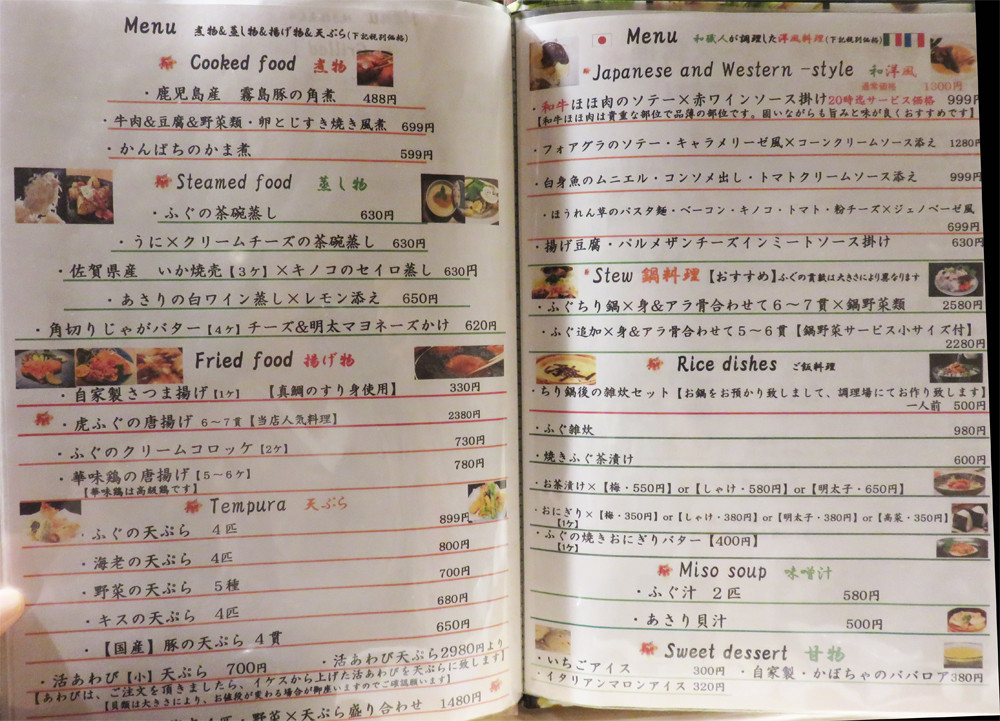 Menu 煮物&蒸し物&揚げ物&天ぷら(下記税別価格)
Cooked food 煮物
・鹿児島産 霧島豚の角煮 488円
・牛肉&豆腐&野菜類・卵とじすき焼き風煮 699円
・かんぱちのかま煮 599円
Steamed food 蒸し物
・ふぐの茶碗蒸し 630円
・うに×クリームチーズの茶碗蒸し 630円
・佐賀県産 いか焼売【3ヶ】×キノコのセイロ蒸し 630円
・あさりの白ワイン蒸し×レモン添え 650円
・角切りじゃがバター【4ヶ】チーズ&明太マヨネーズかけ 620円
Fried food 揚げ物
・自家製さつま揚げ【1ヶ】 【真鯛のすり身使用】 330円
・虎ふぐの唐揚げ 6～7貫【当店人気料理】 2380円
・ふぐのクリームコロッケ【2ヶ】 730円
・華味鶏の唐揚げ【5～6ヶ】 780円
【華味鶏は高級鶏です】
Tempura 天ぷら
・ふぐの天ぷら 4匹 899円
・海老の天ぷら 4匹 800円
・野菜の天ぷら 5種 700円
・キスの天ぷら 4匹 680円
・【国産】豚の天ぷら 4貫 650円
・活あわび【小】天ぷら 700円 ・活あわび天ぷら2980円より
【あわびは、ご注文を頂きましたら、イケスから上げた活あわびを天ぷらに致します】
【貝類は大きさにより、お値段が変わる場合が御座いますのでご確認願います】
4匹・野菜×天ぷら盛り合わせ 1480円
Menu 和職人が調理した洋風料理(下記税別価格)
Japanese and Western -style 和洋風
通常価格 1300円
・和牛ほほ肉のソテー×赤ワインソース掛け20時迄サービス価格 999円
【和牛ほほ肉は貴重な部位で品薄の部位です。固いながらも旨みと味が良くおすすめです】
・フォアグラのソテー・キャラメリーゼ風×コーンクリームソース添え 1280円
・白身魚のムニエル・コンソメ出し・トマトクリームソース添え 999円
・ほうれん草のパスタ麺・ベーコン・キノコ・トマト・粉チーズ×ジェノベーゼ風
699円
・揚げ豆腐・パルメザンチーズインミートソース掛け 630円
Stew 鍋料理【おすすめ】ふぐの貫数は大きさにより異なります
・ふぐちり鍋×身&アラ骨合わせて6～7貫×鍋野菜類 2580円
・ふぐ追加×身&アラ骨合わせて5～6貫【鍋野菜サービス小サイズ付】
2280円
Rice dishes ご飯料理
・ちり鍋後の雑炊セット【お鍋をお預かり致しまして、調理場にてお作り致します】
一人前 500円
・ふぐ雑炊 980円
・焼きふぐ茶漬け 600円
・お茶漬け×【梅・550円】or【しゃけ・580円】or【明太子・650円】
・おにぎり×【梅・350円】or【しゃけ・380円】or【明太子・380円】or【高菜・350円】
【1ヶ】
・ふぐの焼きおにぎりバター【400円】
【1ヶ】
Miso soup 味噌汁
・ふぐ汁 2匹 580円
・あさり貝汁 500円
Sweet dessert 甘物
・いちごアイス 300円 ・自家製・かぼちゃのババロア380円
・イタリアンマロンアイス 320円